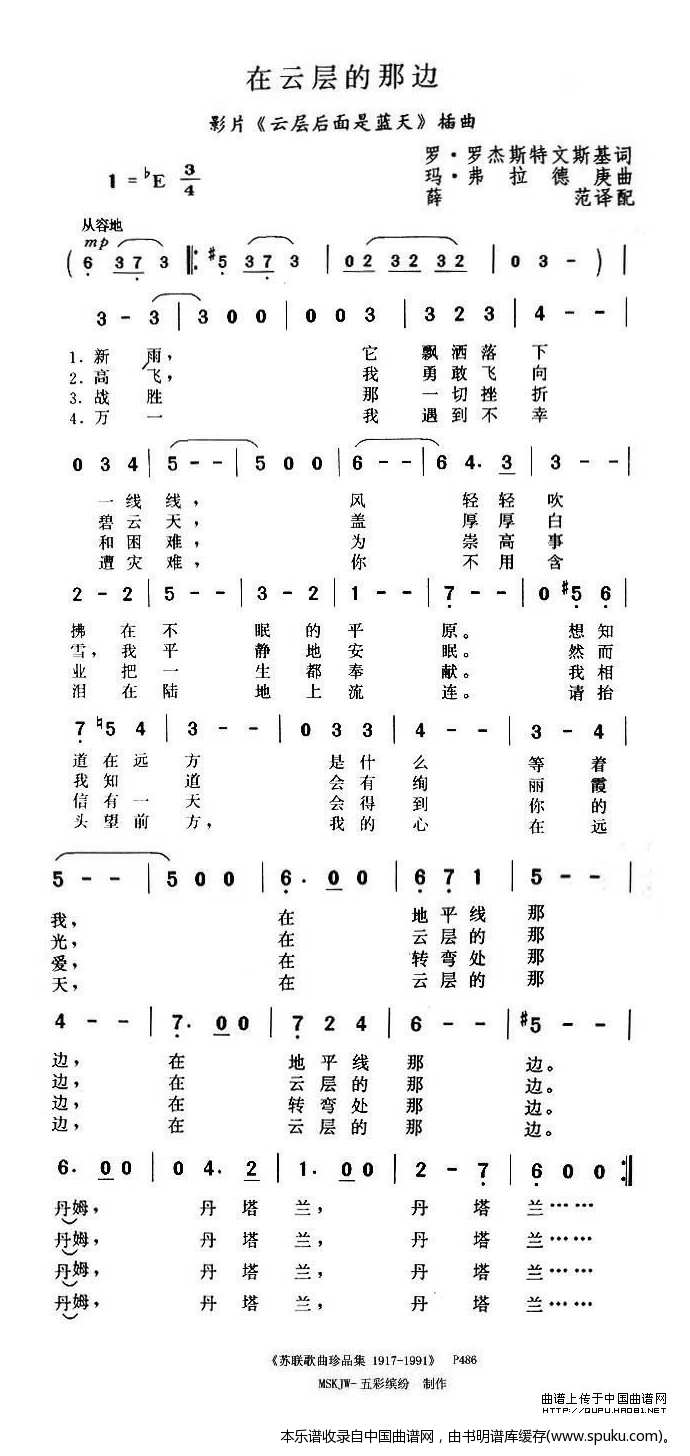 在云层的那边
影片《云层后面是蓝天》插曲
罗·罗杰斯特文斯基词
1 = ♭E 3/4
玛·弗拉德庚曲
薛范译配
从容地
mp
( 6 3 7 3 ‖: #5 3 7 3 | 0 2 3 2 3 2 | 0 3 - ) |
3 - 3 | 3 0 0 | 0 0 3 | 3 2 3 | 4 - - |
1. 新雨， 它飘洒落下
2. 高飞， 我勇敢飞向
3. 战胜 那一切挫折
4. 万一 我遇到不幸
0 3 4 | 5 - - | 5 0 0 | 6 - - | 6 4. 3 | 3 - - |
一线线， 风轻轻吹
碧云天， 盖厚厚白
和困难， 为崇高事
遭灾难， 你不用含
2 - 2 | 5 - - | 3 - 2 | 1 - - | 7 - - | 0 #5 6 |
拂在不眠的平原。 想知
雪，我平静地安眠。 然而
业把一生都奉献。 我相
泪在陆地上流连。 请抬
7 ♮5 4 | 3 - - | 0 3 3 | 4 - - | 3 - 4 |
道在远方 是什么等着
我知道 会有绚丽霞
信有一天 会得到你的
头望前方， 我的心在远
5 - - | 5 0 0 | 6. 0 0 | 6 7 1 | 5 - - |
我， 在地平线那
光， 在云层的那
爱， 在转弯处那
天， 在云层的那
4 - - | 7. 0 0 | 7 2 4 | 6 - - | #5 - - |
边， 在地平线那边。
边， 在云层的那边。
边， 在转弯处那边。
边， 在云层的那边。
6. 0 0 | 0 4. 2 | 1. 0 0 | 2 - 7 | 6 0 0 :‖
丹姆， 丹塔兰， 丹塔兰……
丹姆， 丹塔兰， 丹塔兰……
丹姆， 丹塔兰， 丹塔兰……
丹姆， 丹塔兰， 丹塔兰……
《苏联歌曲珍品集 1917-1991》 P486
MSKJW-五彩缤纷 制作
曲谱上传于中国曲谱网
HTTP://QUPU.HAO81.NET
本乐谱收录自中国曲谱网，由书明谱库缓存(www.spuku.com)。